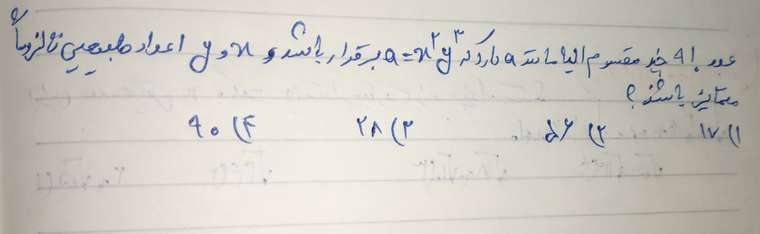 عدد !9 چند مقسوم الیه مانند a دارد که a=x²y³ برقرار باشد و x و y اعداد طبیعیی نالزوماً
متمایز باشند؟
۱) ۱۷ ۲) ۵۶ ۳) ۲۸ ۴) ۹۰